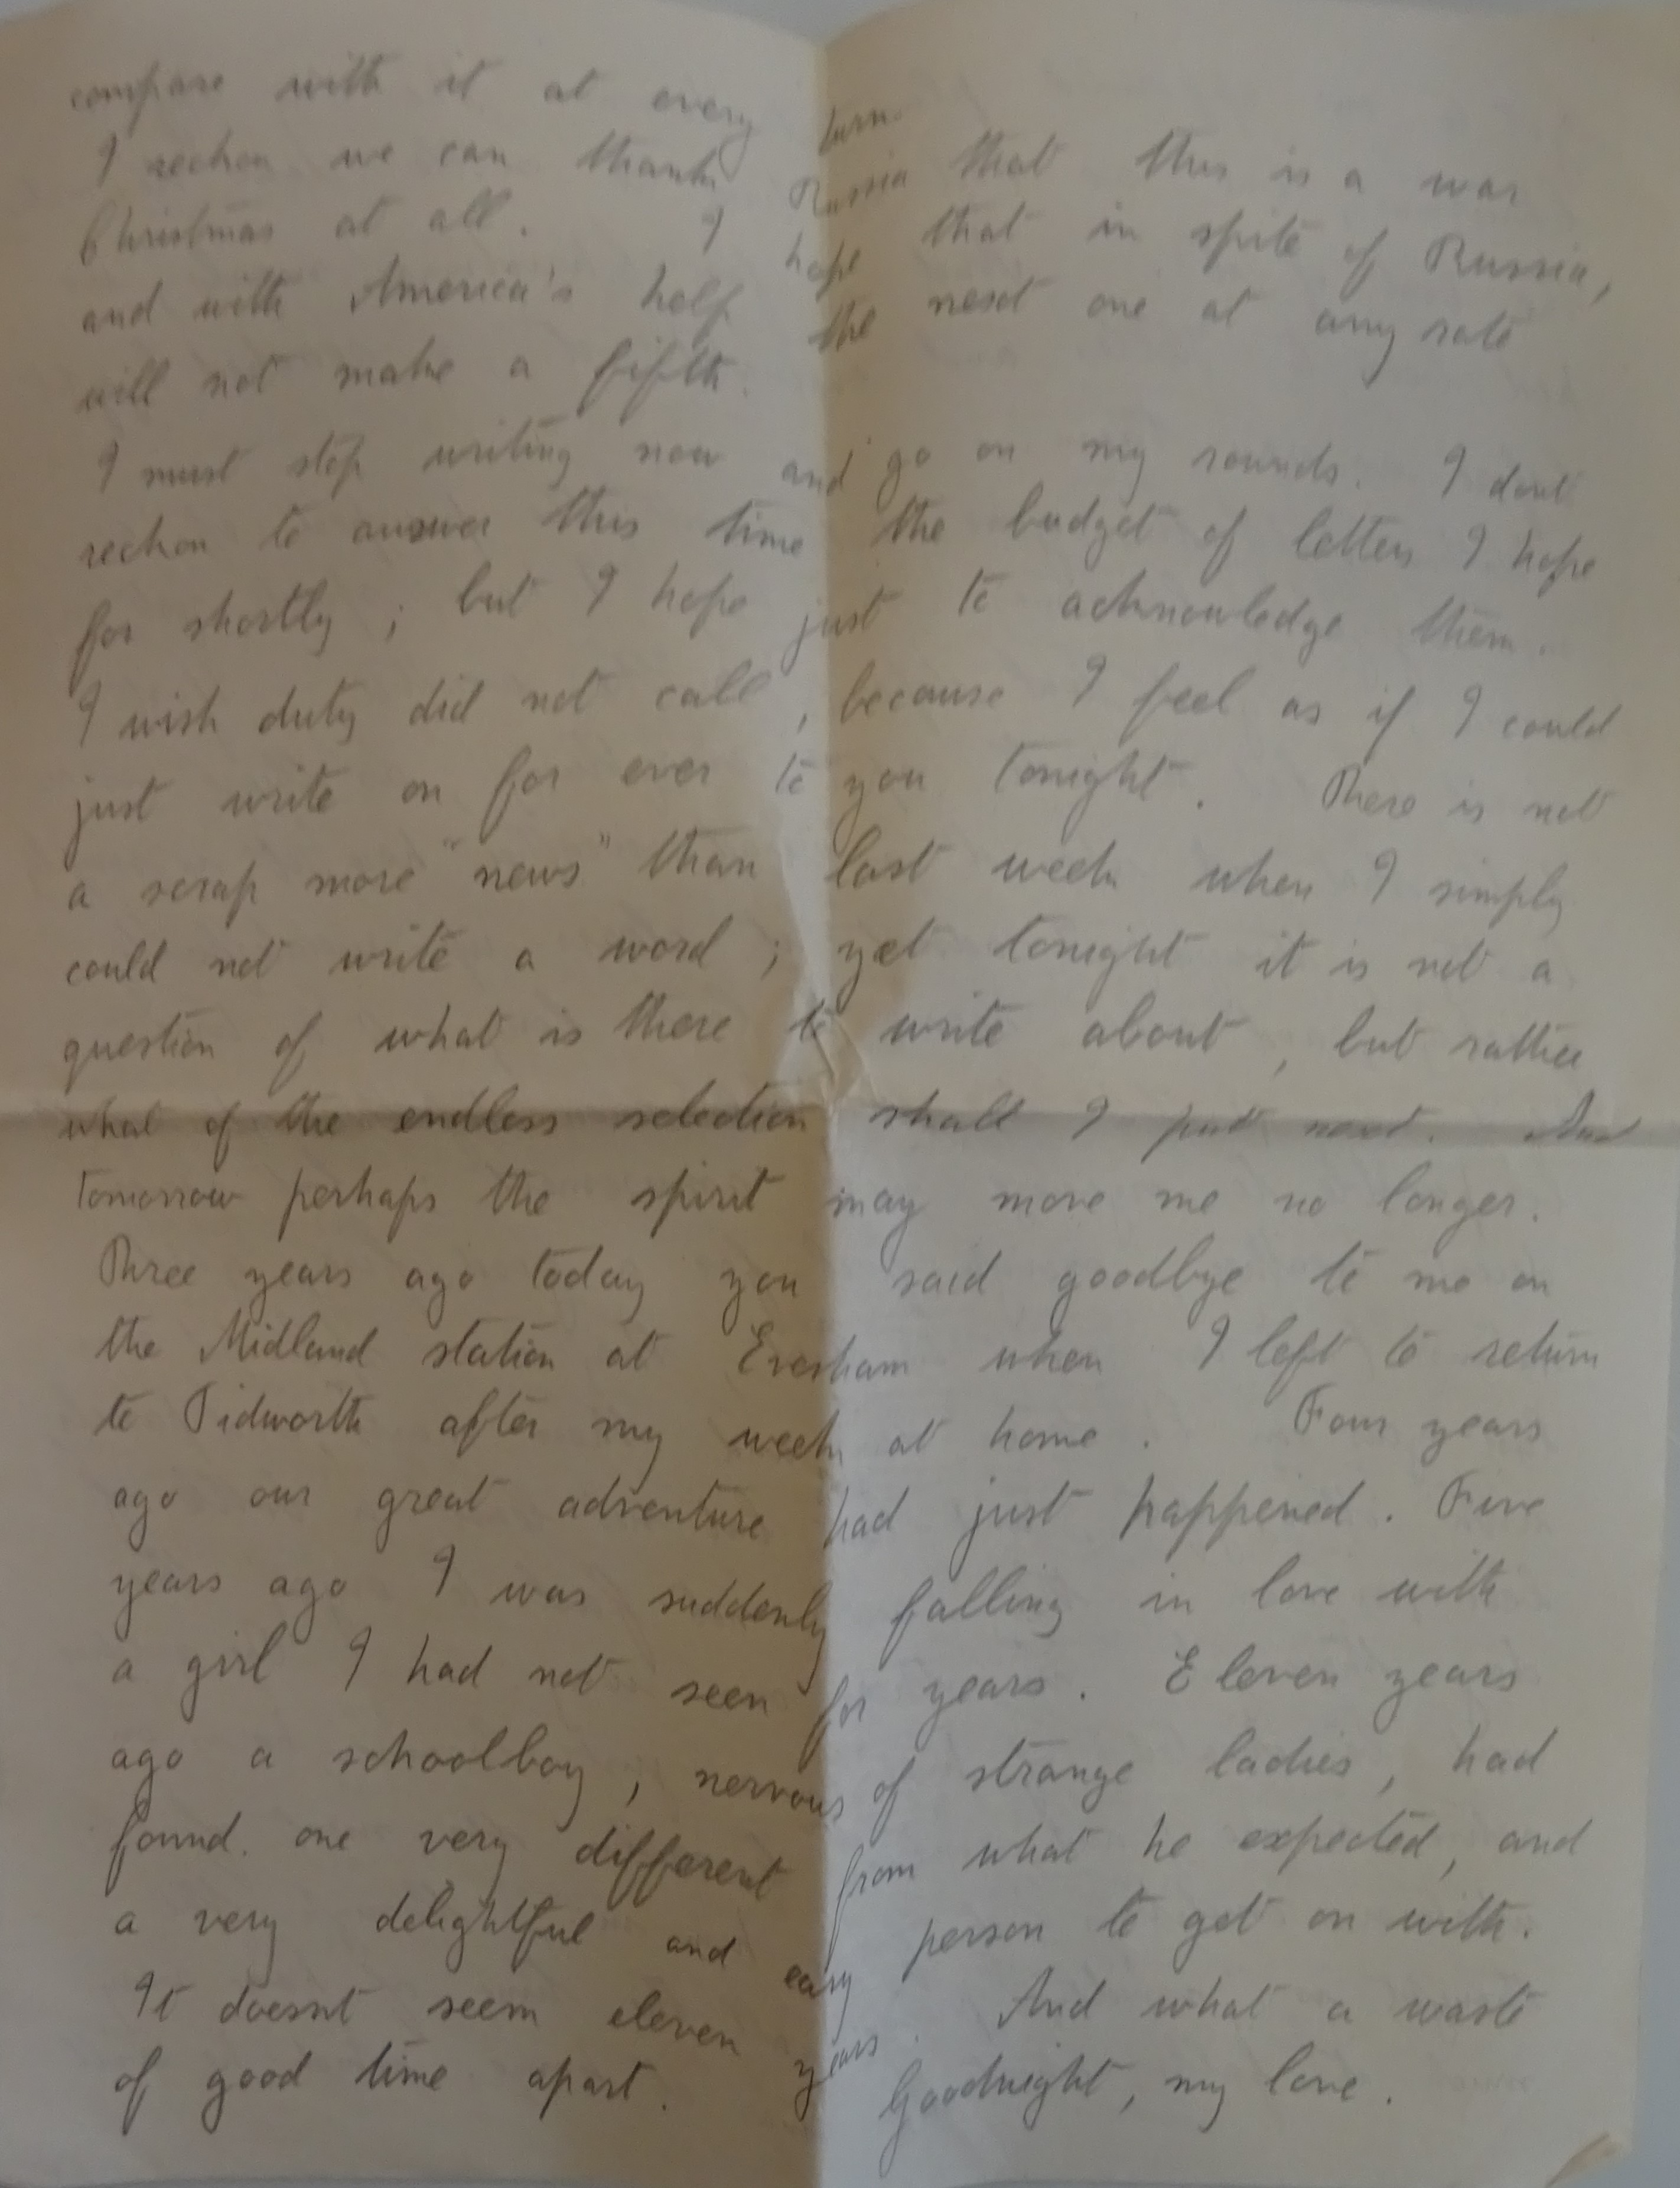 compare with it at every turn.
I reckon we can thank Russia that this is a war
Christmas at all. I hope that in spite of Russia,
and with America's help the next one at any rate
will not make a fifth.
I must stop writing now and go on my rounds. I dont
reckon to answer this time the budget of letters I hope
for shortly; but I hope just to acknowledge them.
I wish duty did not call, because I feel as if I could
just write on for ever to you tonight. There is not
a scrap more "news" than last week when I simply
could not write a word; yet tonight it is not a
question of what is there to write about, but rather
what of the endless selection shall I put next. And
tomorrow perhaps the spirit may move me no longer.
Three years ago today you said goodbye to me on
the Midland station at Evesham when I left to return
to Tidworth after my week at home. Four years
ago our great adventure had just happened. Five
years ago I was suddenly falling in love with
a girl I had not seen for years. Eleven years
ago a schoolboy, nervous of strange ladies, had
found. one very different from what he expected, and
a very delightful and easy person to get on with.
It doesnt seem eleven years. And what a waste
of good time apart. Goodnight, my love.